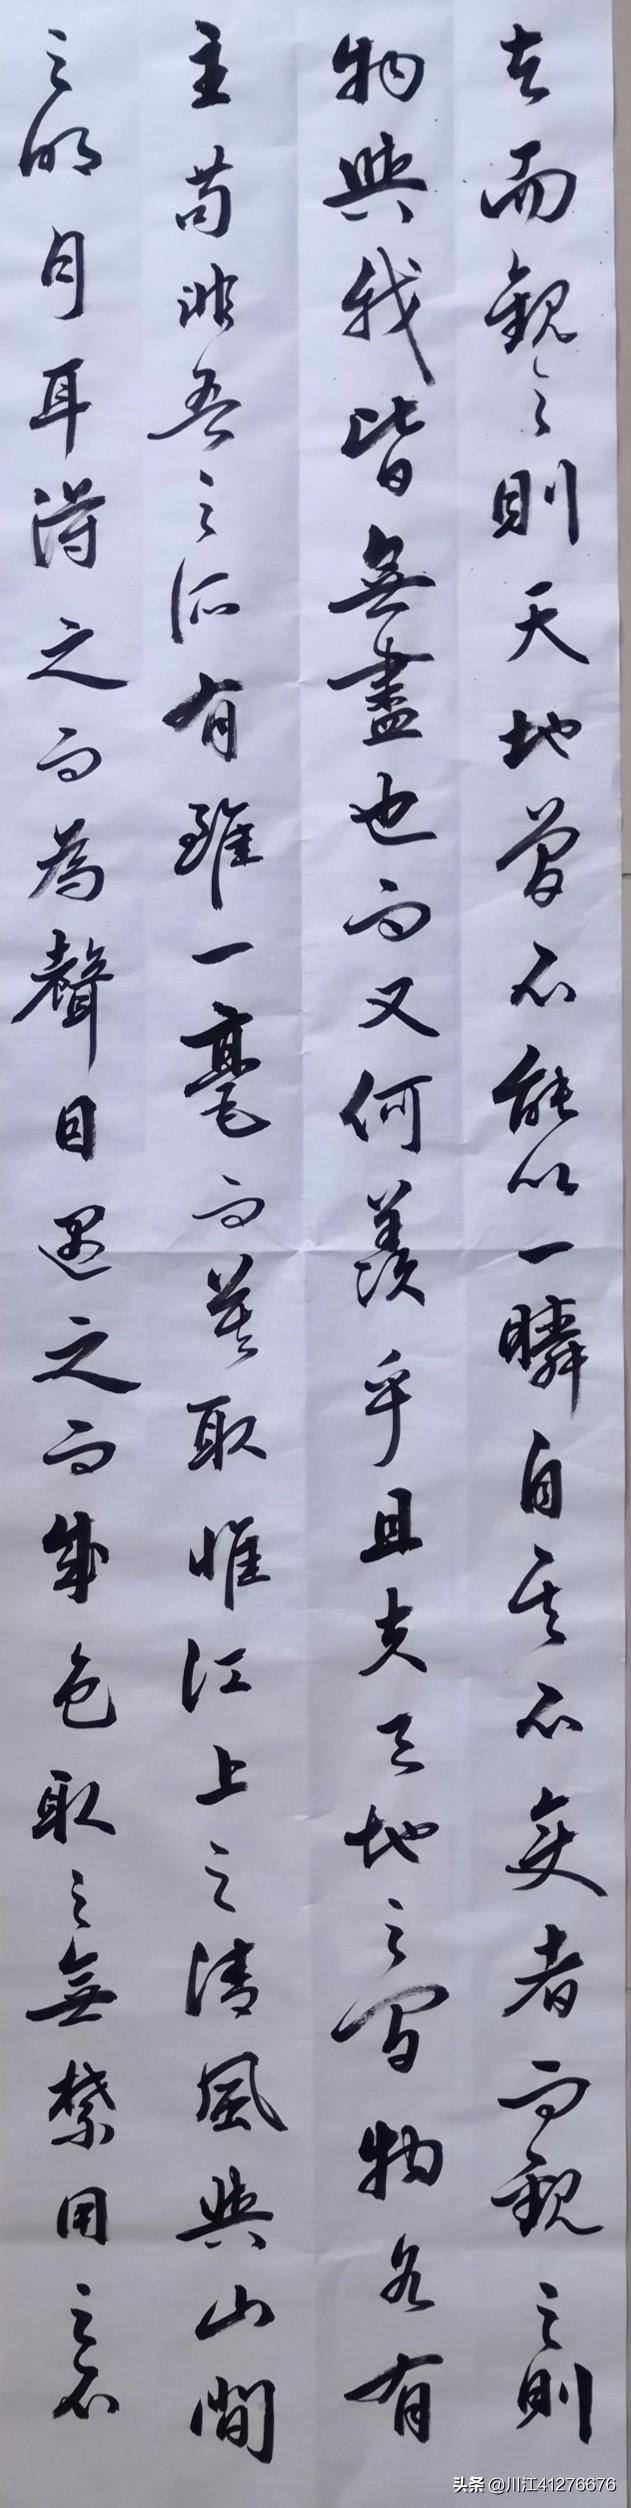 者而觀之則天地曾不能以一瞬自其不変者而觀之則
物與我皆無盡也而又何羨乎且夫天地之間物各有
主苟非吾之所有雖一毫而莫取惟江上之清風與山間
之明月耳得之而為聲目遇之而成色取之無禁用之不
头条 @川江41276676